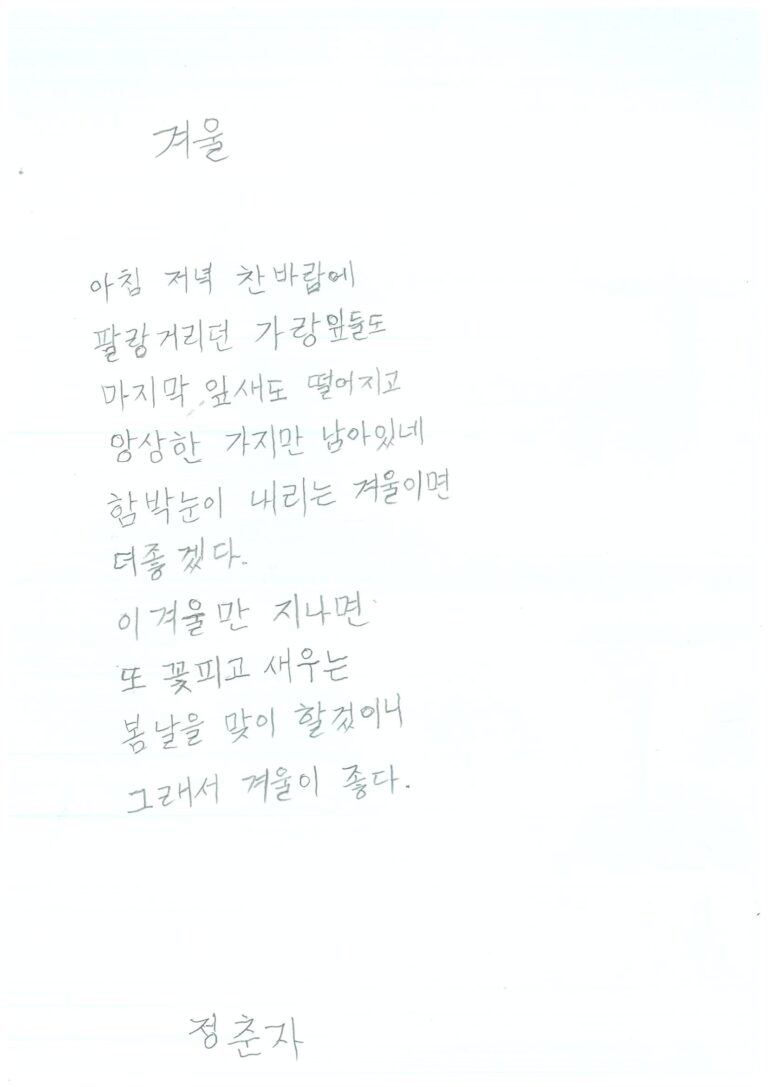 겨울
아침 저녁 찬바람에
팔랑거리던 가랑잎들도
마지막 잎새도 떨어지고
앙상한 가지만 남아있네
함박눈이 내리는 겨울이면
더좋겠다.
이겨울만 지나면
또 꽃피고 새우는
봄날을 맞이 할것이니
그래서 겨울이 좋다.
정춘자